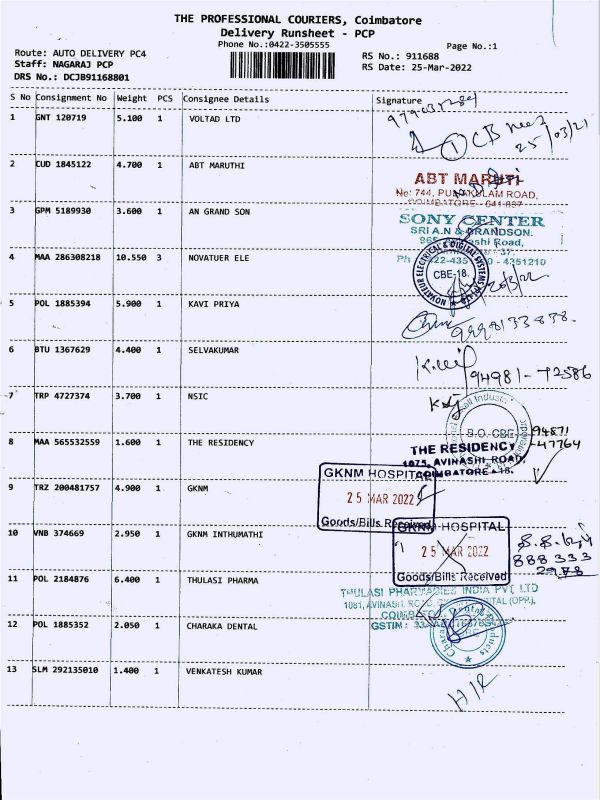 THE PROFESSIONAL COURIERS, Coimbatore
Delivery Runsheet - PCP
Phone No.:0422-3505555
Page No.:1
Route: AUTO DELIVERY PC4
Staff: NAGARAJ PCP
DRS No.: DCJB91168801
RS No.: 911688
RS Date: 25-Mar-2022
S No Consignment No Weight PCS Consignee Details Signature
1 GNT 120719 5.100 1 VOLTAD LTD
25/03/21
2 CUD 1845122 4.700 1 ABT MARUTHI
ABT MARUTI
No: 744, PULIAKULAM ROAD,
COIMBATORE - 641 037
3 GPM 5189930 3.600 1 AN GRAND SON
SONY CENTER
SRI A.N & GRANDSON.
Road,
4 MAA 286308218 10.550 3 NOVATUER ELE
- 4351210
NOVATEUR ELECTRICAL & DIGITAL SYSTEMS
CBE-18.
5 POL 1885394 5.900 1 KAVI PRIYA
9998133838.
6 BTU 1367629 4.400 1 SELVAKUMAR
94981-72586
7 TRP 4727374 3.700 1 NSIC
B.O. CBE
94871
-47764
8 MAA 565532559 1.600 1 THE RESIDENCY
THE RESIDENCY
1075, AVINASHI ROAD,
COIMBATORE - 18.
9 TRZ 200481757 4.900 1 GKNM
GKNM HOSPITAL
25 MAR 2022
Goods/Bills Received
10 VNB 374669 2.950 1 GKNM INTHUMATHI
GKNM HOSPITAL
25 MAR 2022
Goods/Bills Received
888 333
2978
11 POL 2184876 6.400 1 THULASI PHARMA
THULASI PHARMACIES INDIA PVT LTD
1081, AVINASHI ROAD, HOSPITAL (OPP.),
GSTIN: 33
12 POL 1885352 2.050 1 CHARAKA DENTAL
Charaka Dental Products
13 SLM 292135010 1.400 1 VENKATESH KUMAR
H/R